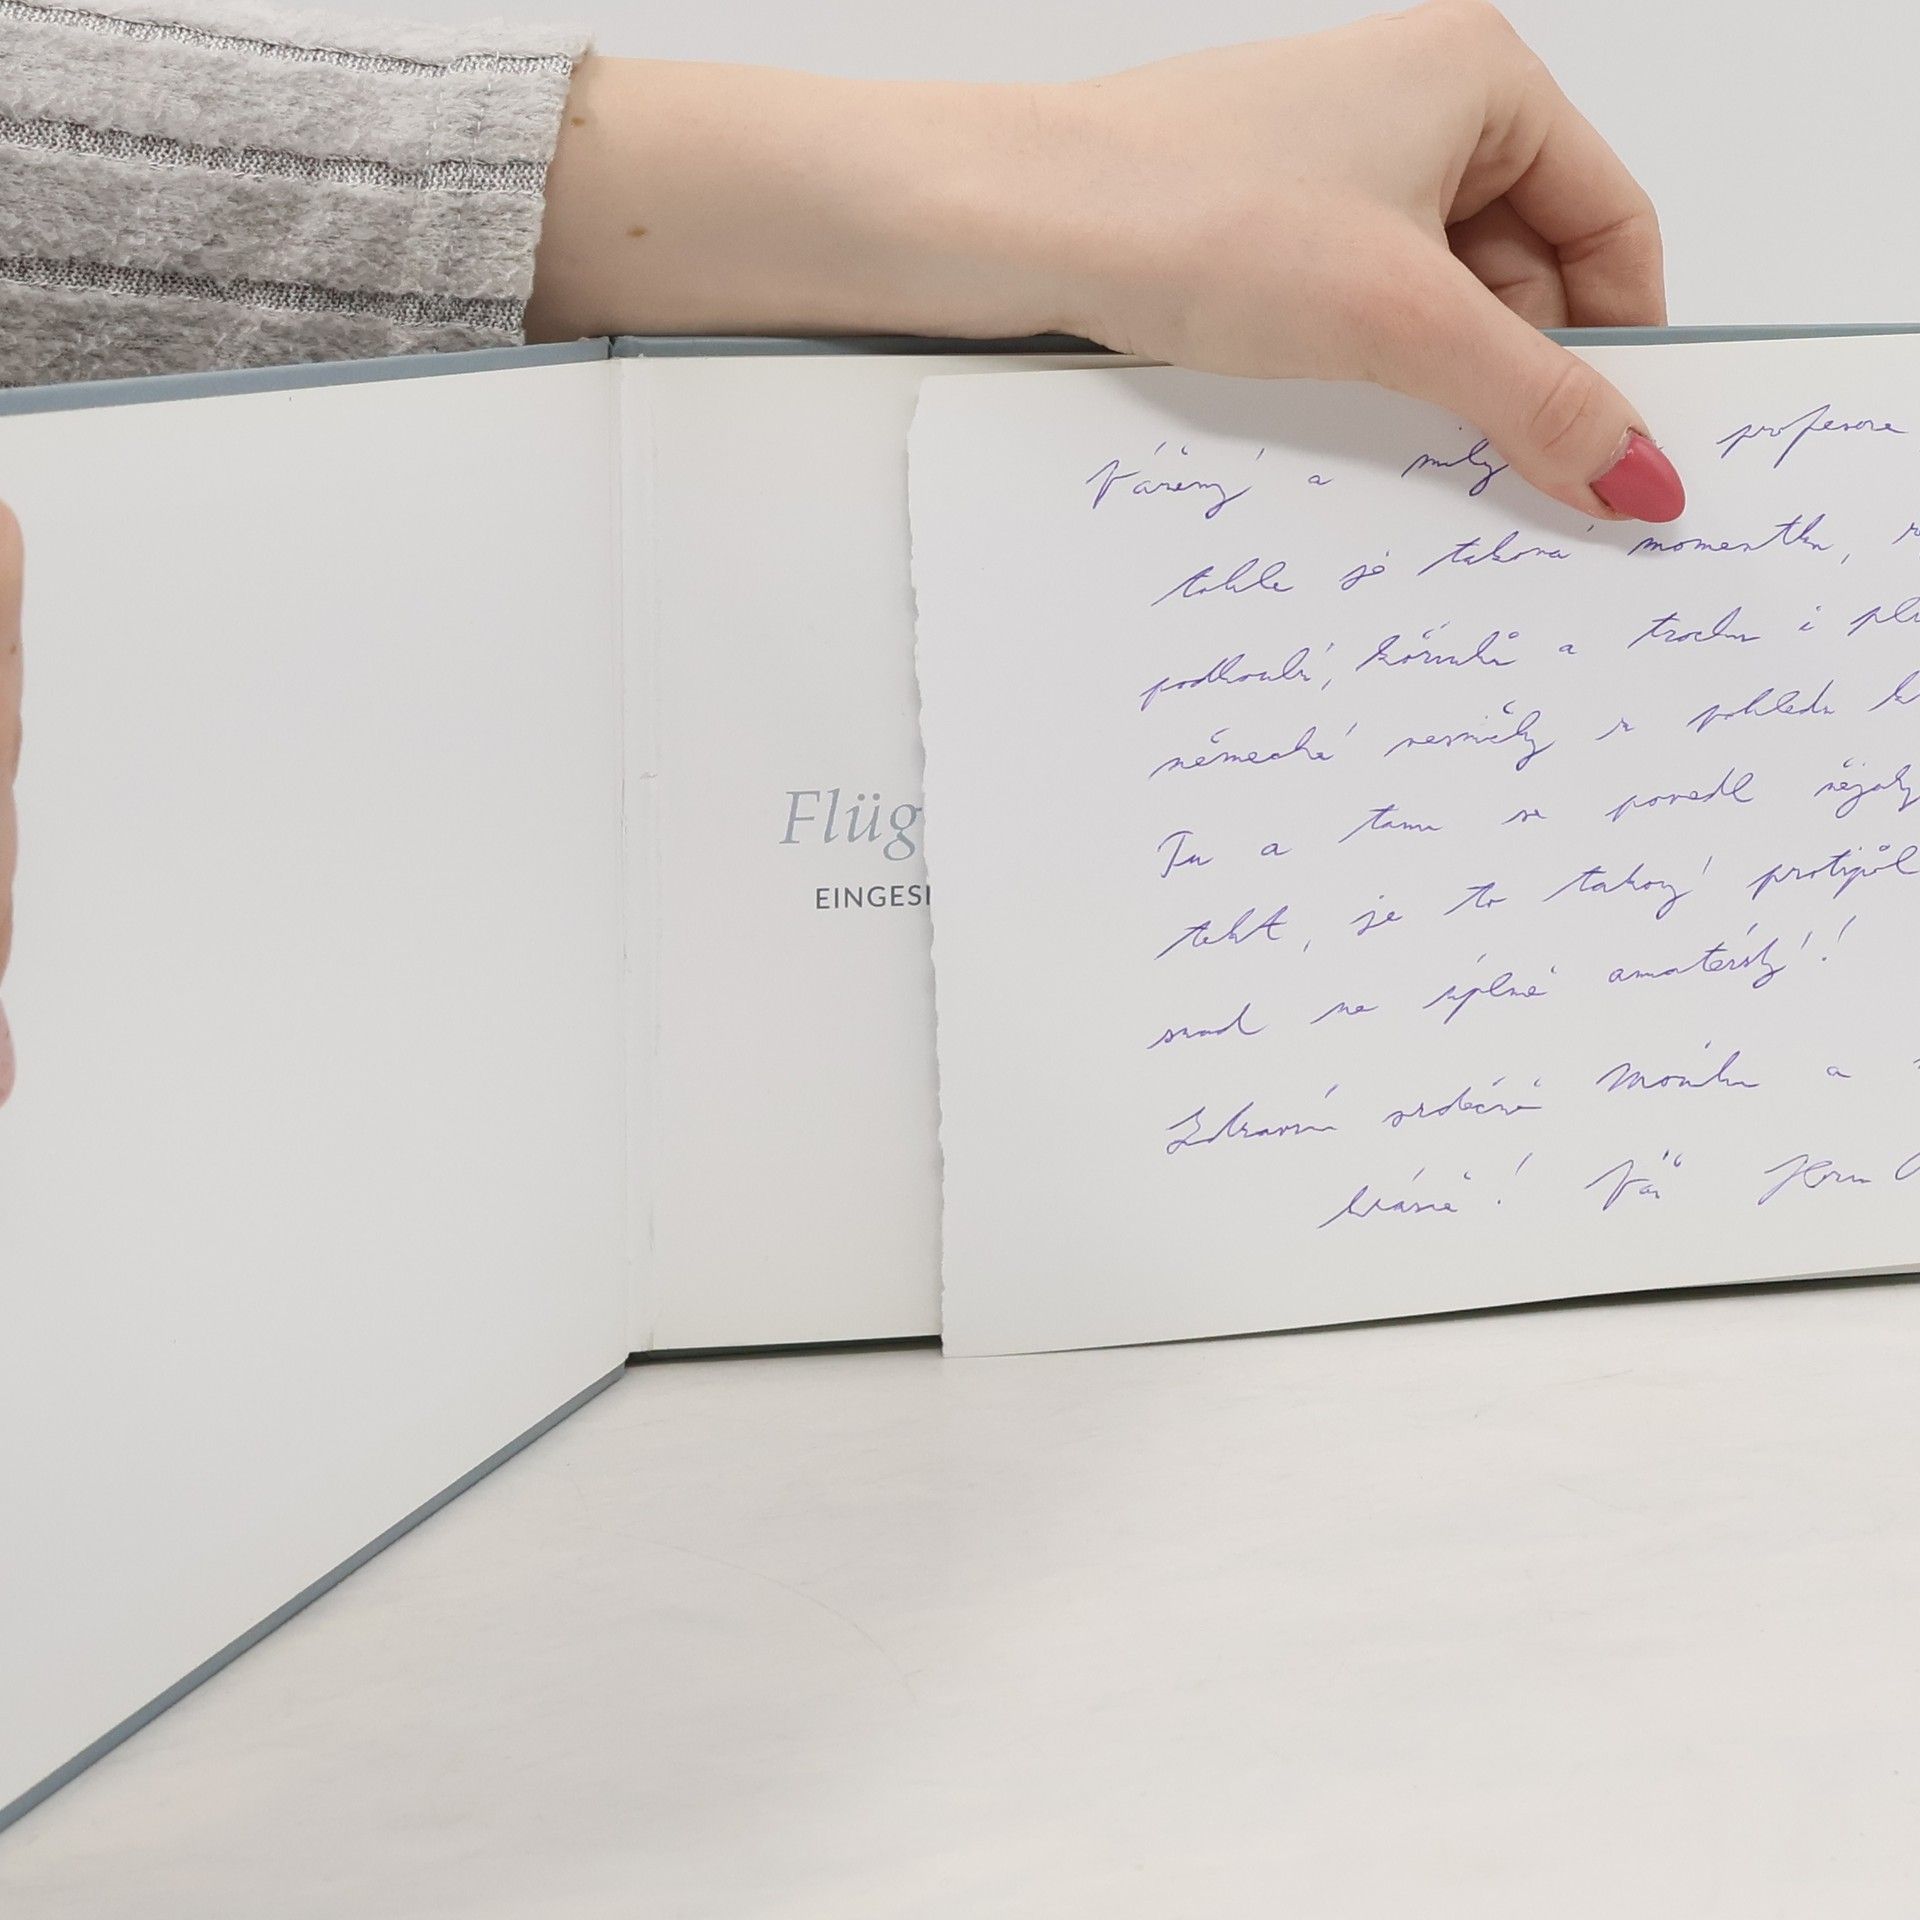 Flüg
EINGESI
Vážený a milý profesore
tohle je taková momentka,
podkoní, kořínků a trochu i
německé vesničky z pohledu
Tu a tam se povedl nějaký
tekt, je to takový protipól
snad ne úplně amatérský!
Zdravím srdečně Moniku a
krásné! Váš